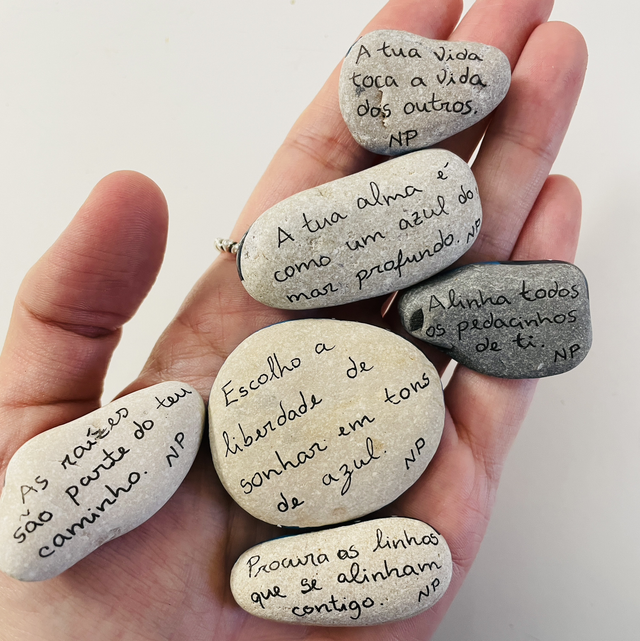 A tua vida
toca a vida
dos outros.
NP
A tua alma é
como um azul do
mar profundo. NP
Alinha todos
os pedacinhos
de ti. NP
Escolho a
liberdade de
sonhar em tons
de azul. NP
As raízes
são parte do teu
caminho. NP
Procura as linhas
que se alinham
contigo. NP